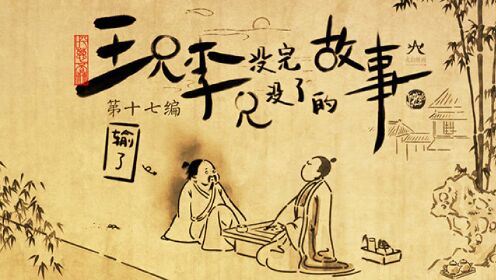 王兄李兄没完没了的故事
第十七编
输了